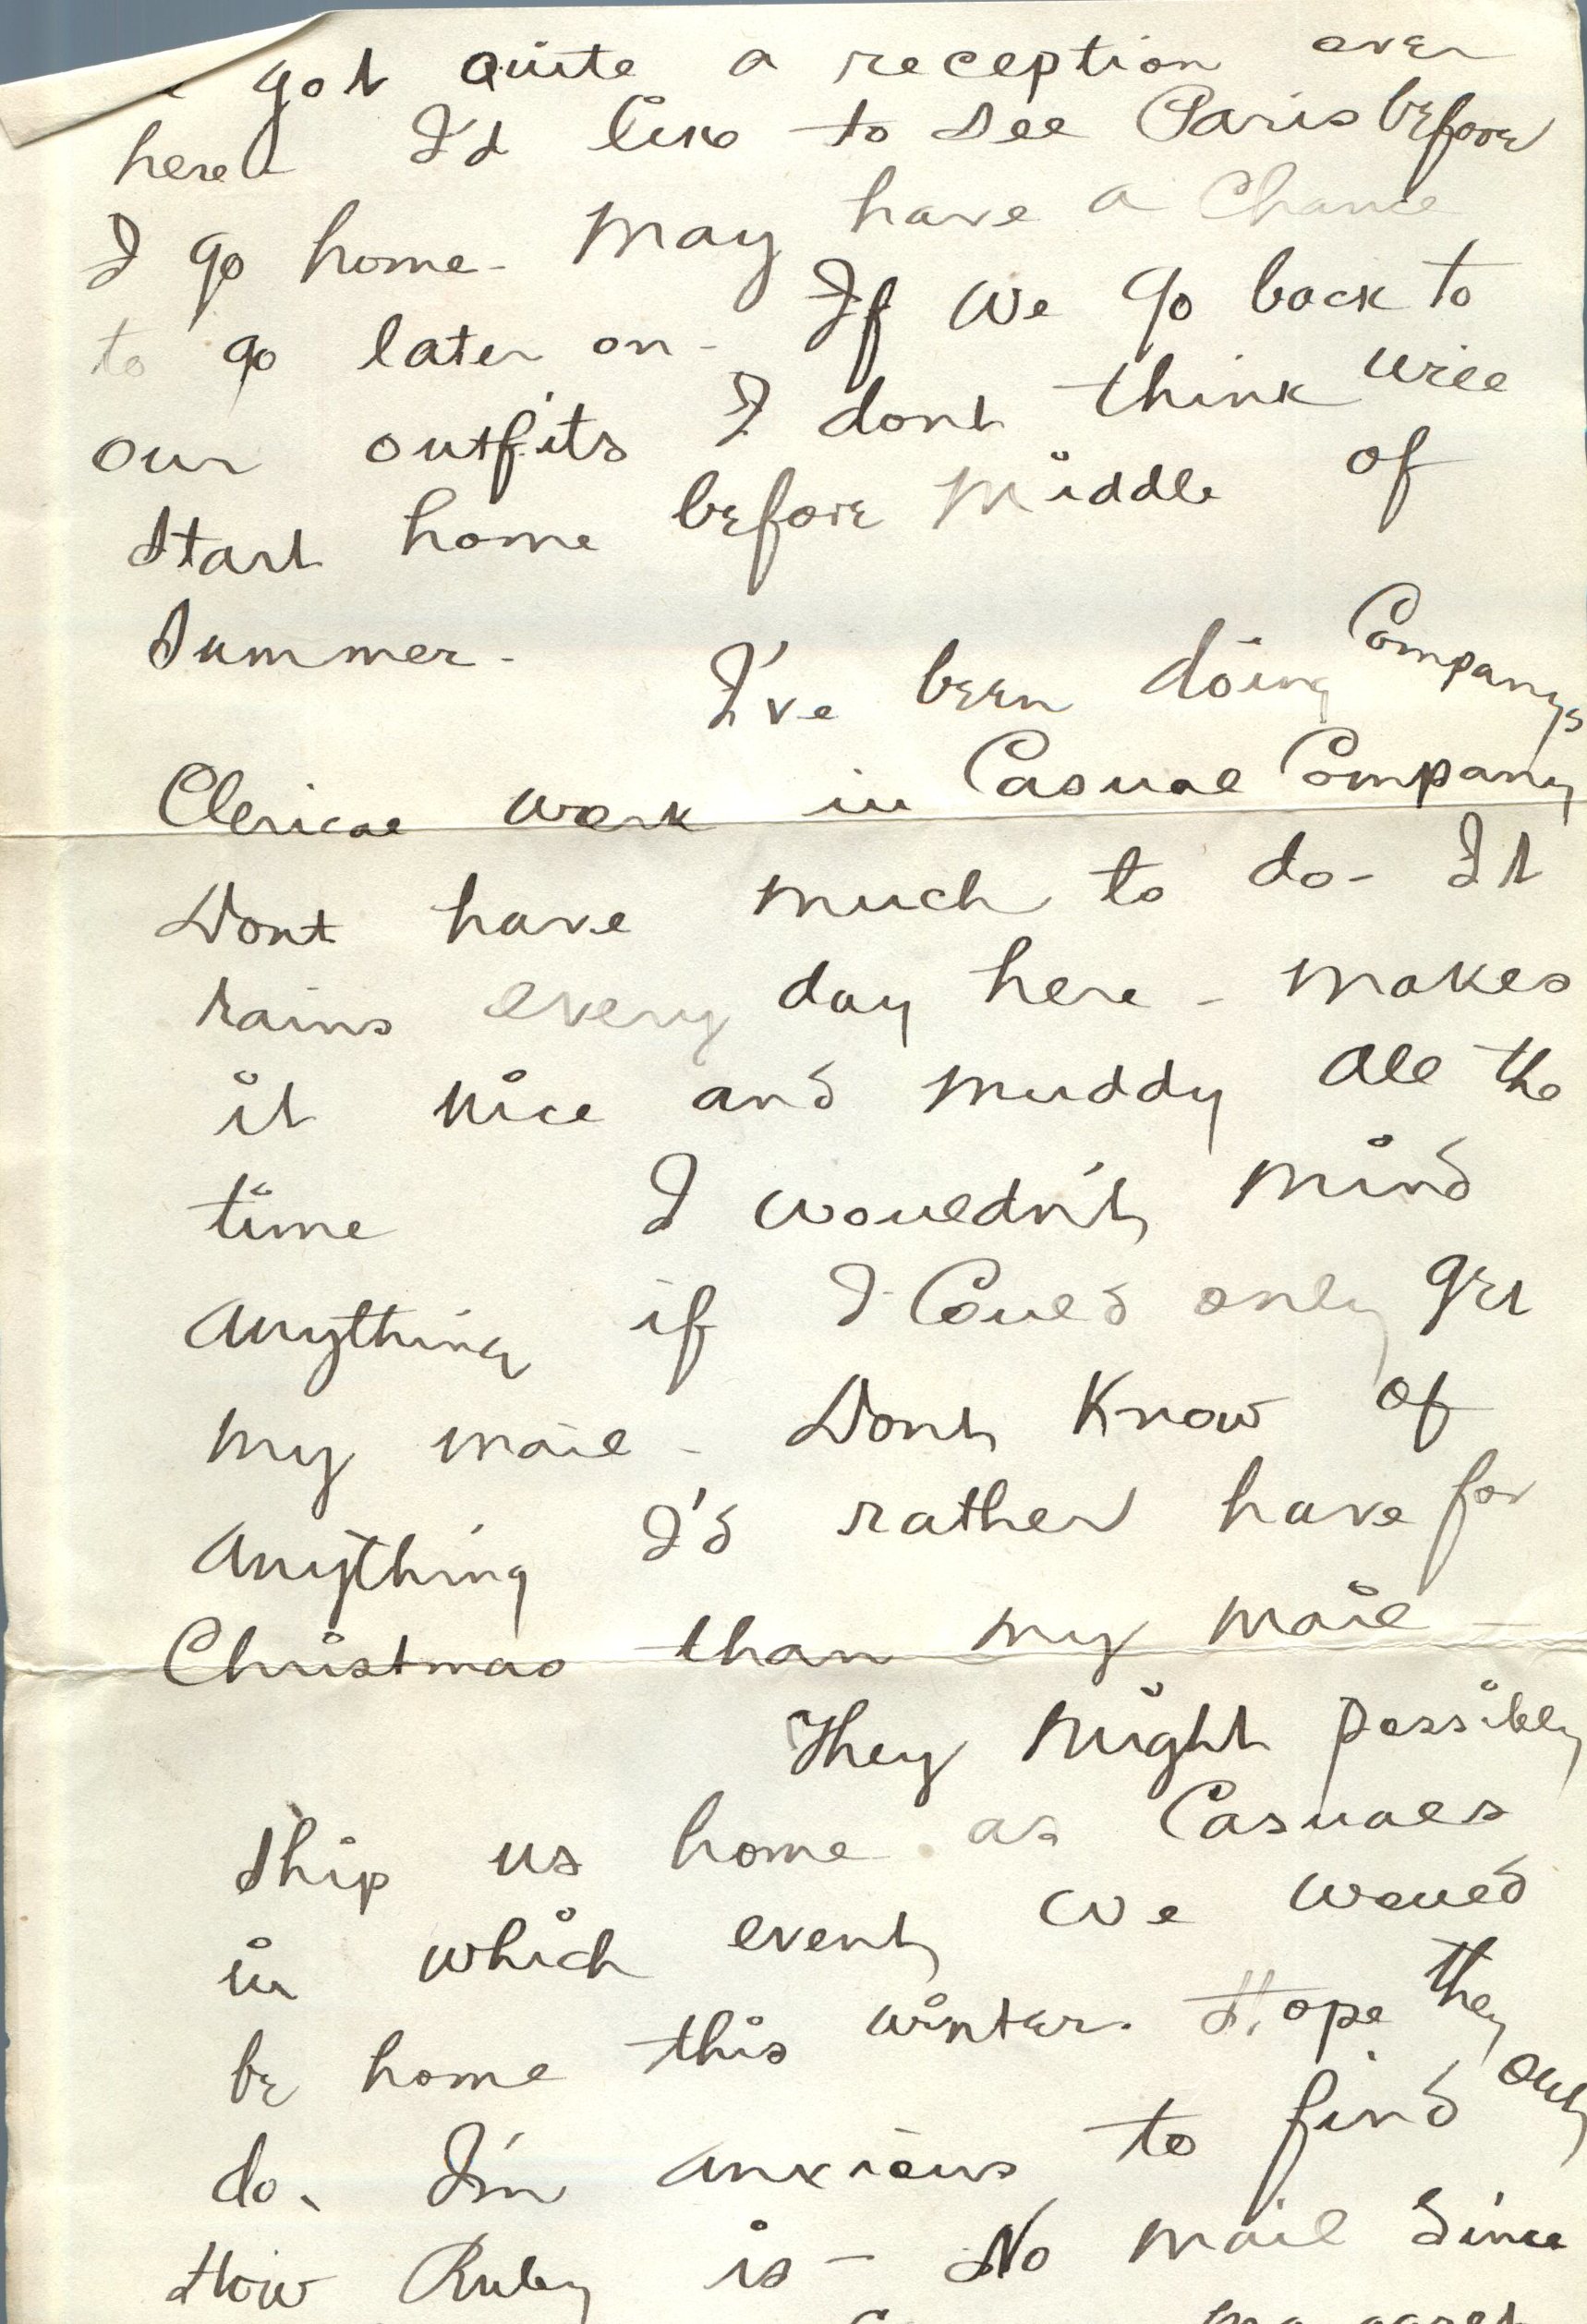 got quite a reception over
here I'd like to see Paris before
I go home - May have a Chance
to go later on - If we go back to
our outfits I dont think will
start home before middle of
Summer -
I've been doing Companys
Clerical work in Casual Company
Dont have much to do - It
rains every day here - makes
it nice and muddy all the
time I wouldn't mind
anything if I Could only get
my mail - Dont Know of
anything I'd rather have for
Christmas than my mail -
They might possibly
ship us home as Casuals
in which event we would
be home this winter. Hope they
do. I'm anxious to find out
How Ruby is - No mail Since